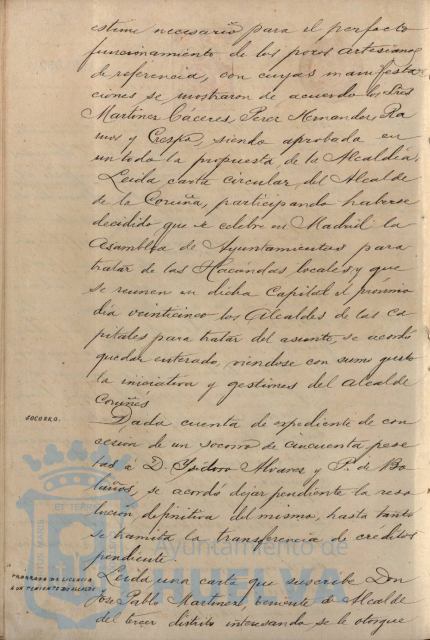 estime necesario para el perfecto
funcionamiento de los pozos artesianos
de referencia, con cuyas manifesta
ciones se mostraron de acuerdo los Sres
Martinez Cáceres, Perez Hernandez, Ra
mos y Crespo, siendo aprobada en
un todo la propuesta de la Alcaldía.
Leida carta circular del Alcalde
de la Coruña, participando haberse
decidido que se celebre en Madrid la
Asamblea de Ayuntamientos para
tratar de las Haciendas locales y que
se reunen en dicha Capital el proximo
dia veinticinco los Alcaldes de las Ca
pitales para tratar del asunto, se acordó
quedar enterado, viendose con sumo gusto
la iniciativa y gestiones del Alcalde
Coruñés
SOCORRO.
Dada cuenta de expediente de con
cesion de un socorro de cincuenta pese
tas á D. Isidoro Alvarez y P. de Bo
laños, se acordó dejar pendiente la reso
lucion definitiva del mismo, hasta tanto
se tramita la transferencia de créditos
pendiente.
PRORROGA DE LICENCIA
A UN TENIENTE DE ALCALDE
Leida una carta que suscribe Don
Jose Pablo Martinez, teniente de Alcalde
del tercer distrito interesando se le otorgue
Ayuntamiento de
HUELVA